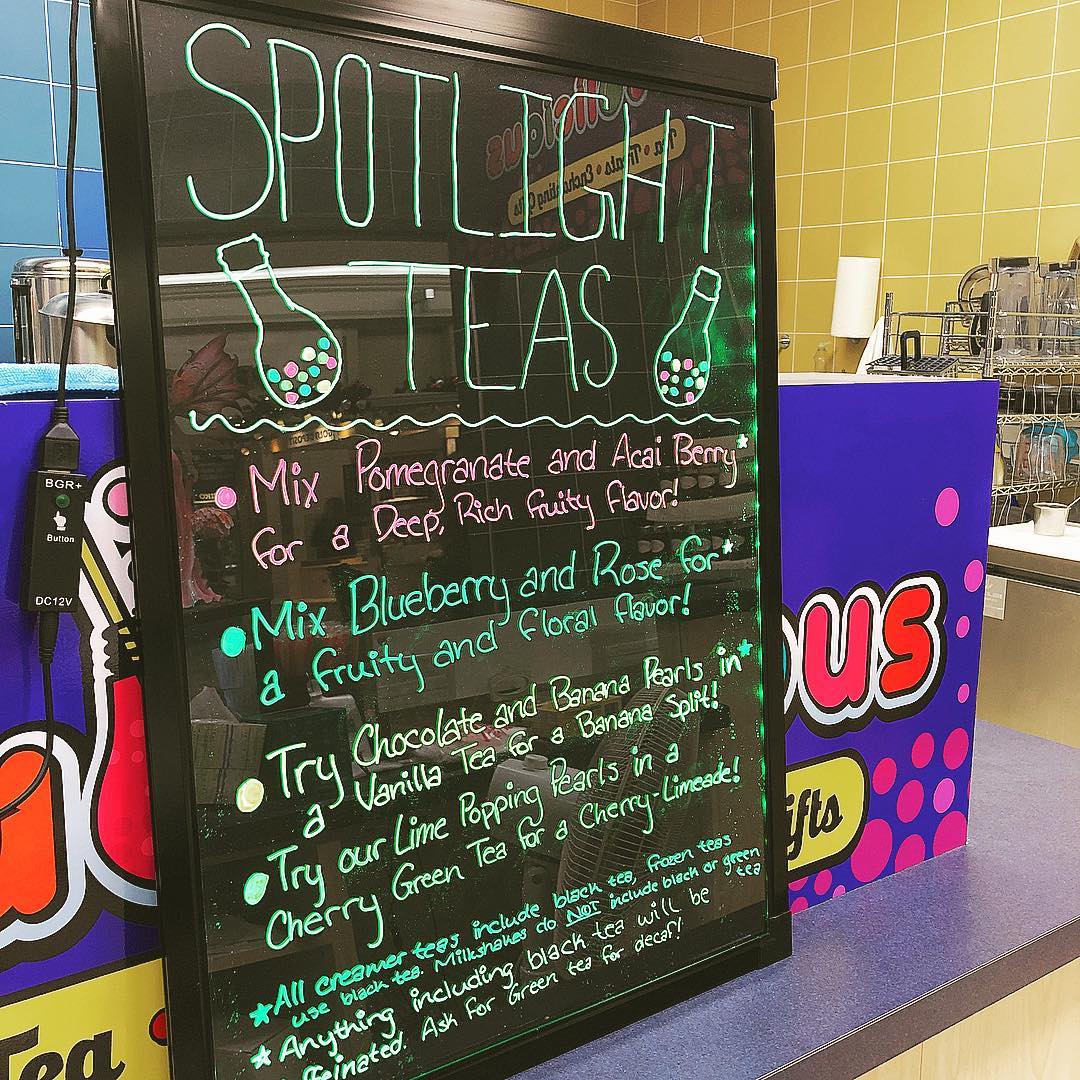 SPOTLIGHT
TEAS
• Mix Pomegranate and Acai Berry*
for a Deep, Rich fruity flavor!
• Mix Blueberry and Rose for*
a fruity and floral flavor!
• Try Chocolate and Banana Pearls in*
a Vanilla Tea for a Banana Split!
• Try our Lime Popping Pearls in a
Cherry Green Tea for a Cherry-Limeade!
*All creamer teas include black tea, frozen teas
use black tea. Milkshakes do NOT include black or green
tea
* Anything including black tea will be
ffeinated. Ask for Green tea for decaf!
BGR+
Button
DC12V
ous
ifts
Tea
Tea • Treats • Enchanting Gifts